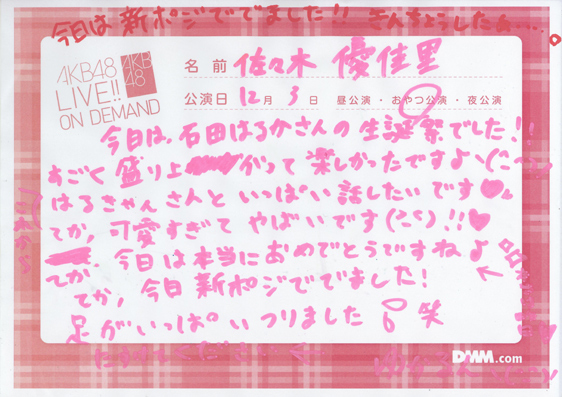 今日は新ポジででました!! きんちょうしたぁ....。
AKB48
LIVE!!
ON DEMAND
AKB
48
名前 佐々木 優佳里
公演日 12月 3日 昼公演・おやつ公演・夜公演
今日は、石田はるかさんの生誕祭でした!!
すごく盛り上がって楽しかったですよ
はるきゃんさんといっぱい話したいです♥
てか、可愛すぎてやばいです!!♥
今日は本当におめでとうですね♪
てか
てか、今日新ポジででました!
足がいっぱいつりました 笑
DMM.com